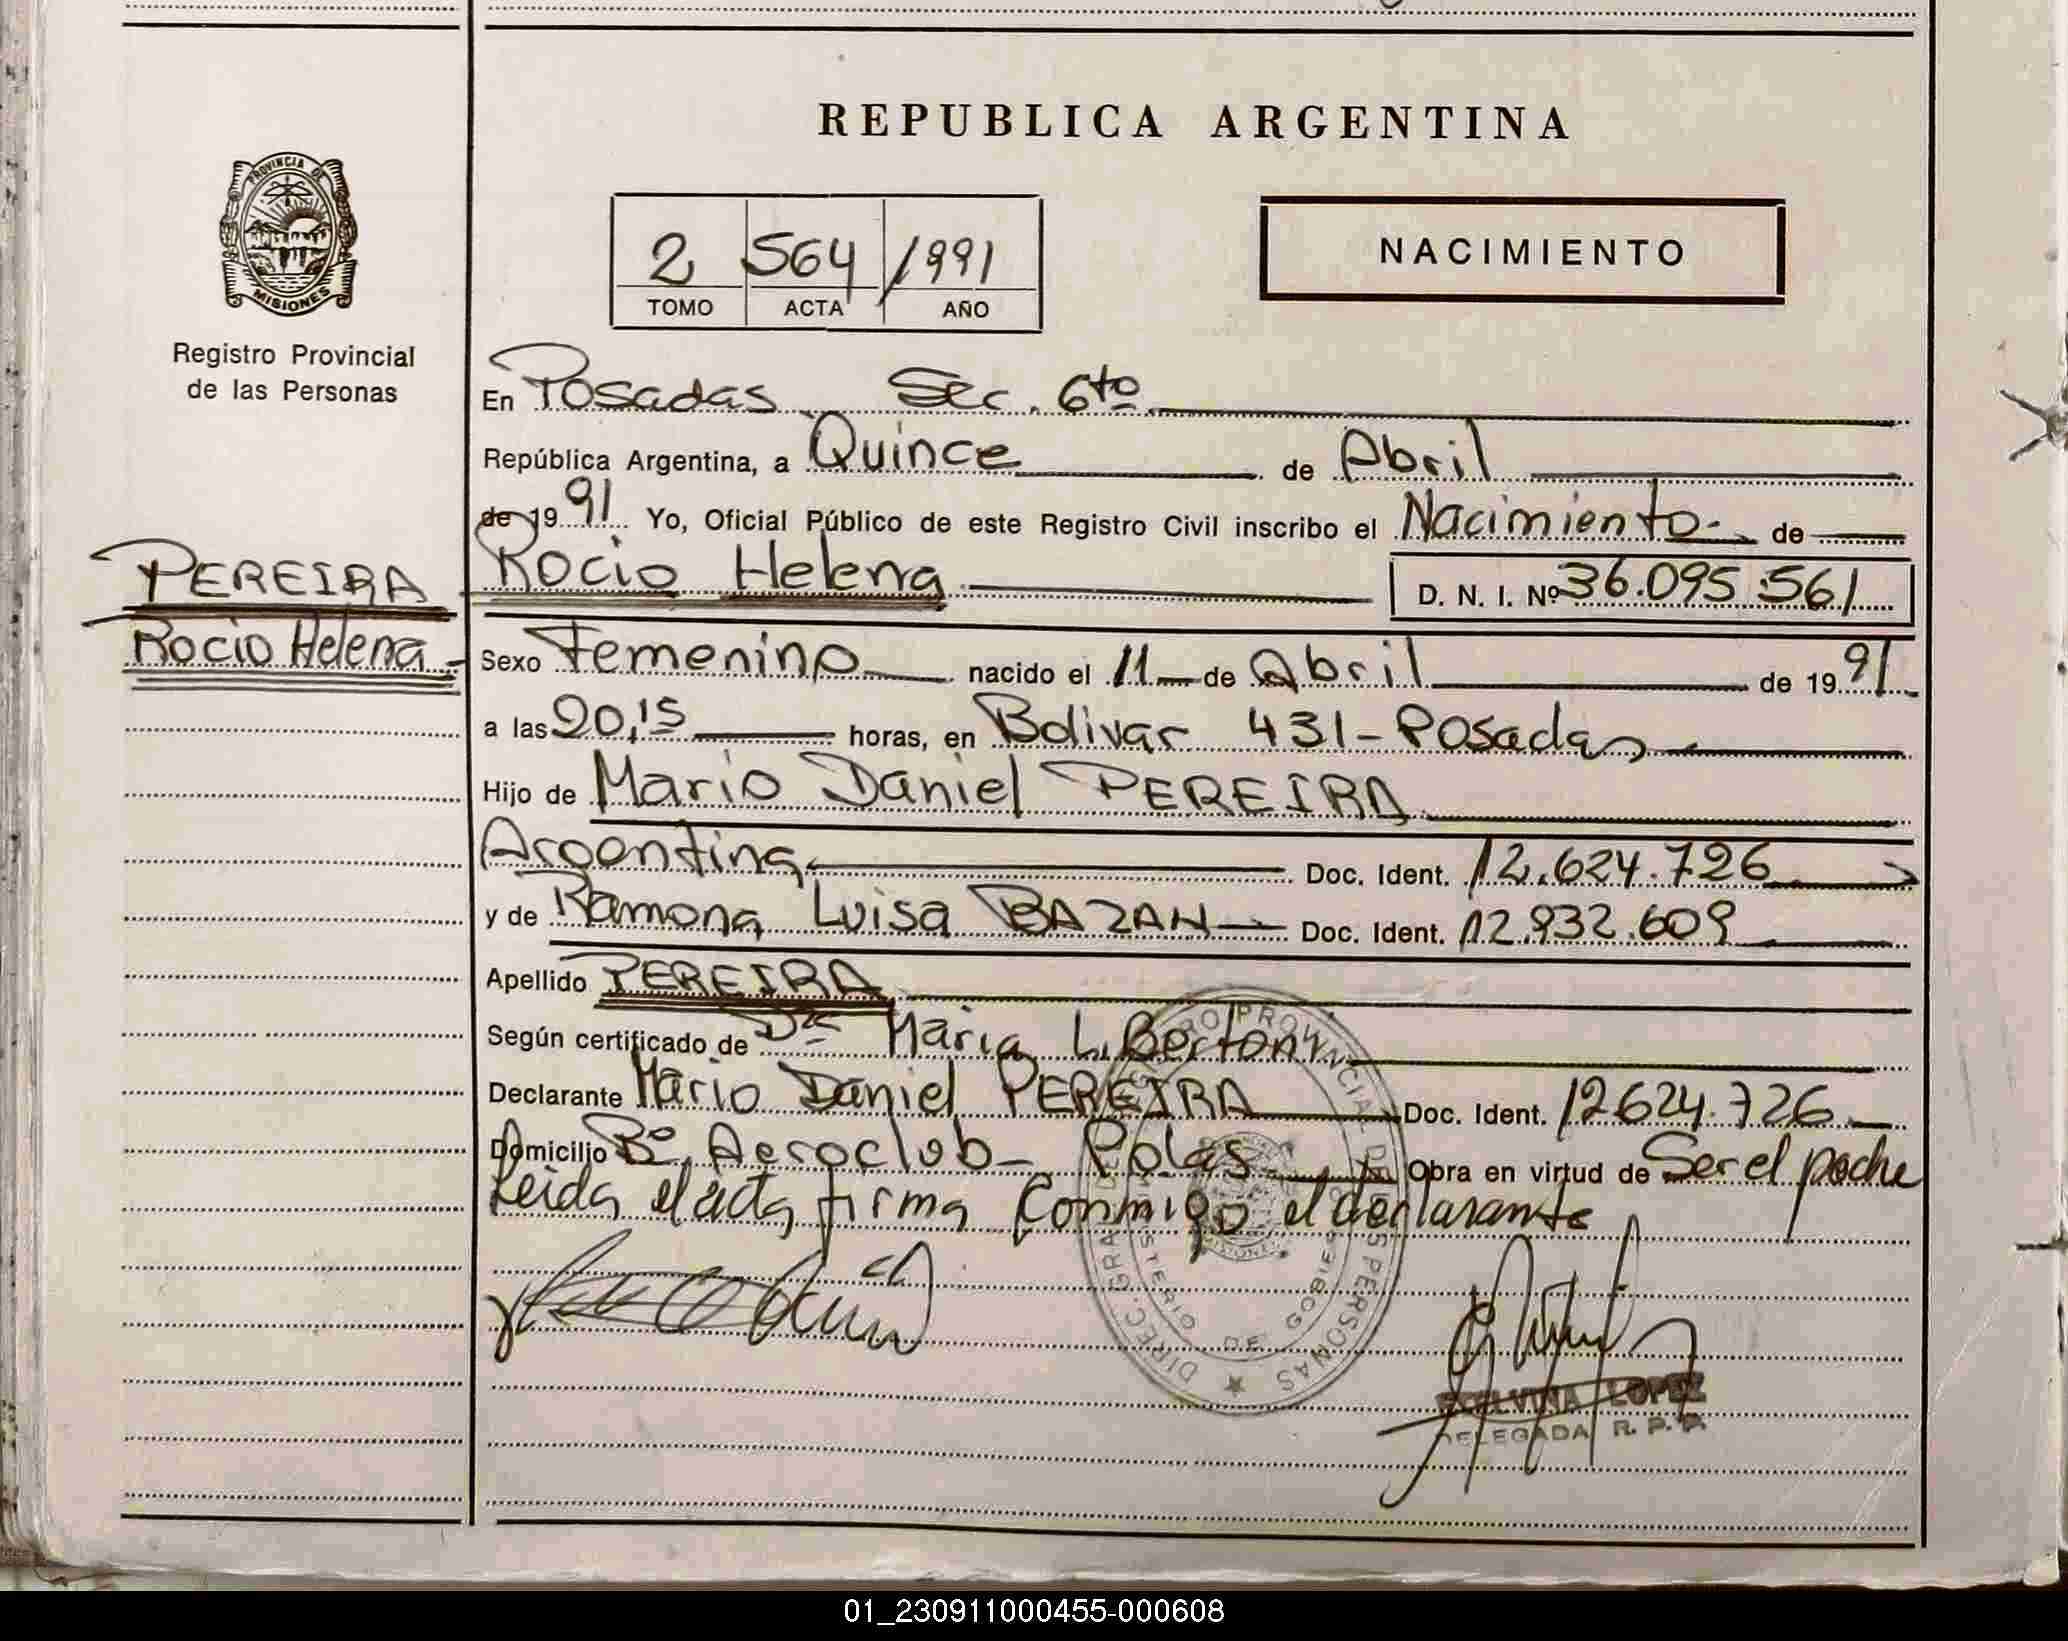 REPUBLICA ARGENTINA
PROVINCIA DE
MISIONES
Registro Provincial
de las Personas
2 564 1991
TOMO ACTA AÑO
NACIMIENTO
En Posadas Sec. 6to
República Argentina, a Quince de Abril
de 1991 Yo, Oficial Público de este Registro Civil inscribo el Nacimiento de
PEREIRA
Rocio Helena
Rocio Helena D. N. I. Nº 36.095.561
Sexo Femenino nacido el 11 de Abril de 1991
a las 20,15 horas, en Bolivar 431 - Posadas
Hijo de Mario Daniel PEREIRA
Argentina Doc. Ident. 12.624.726
y de Ramona Luisa BAZAN Doc. Ident. 12.932.609
Apellido PEREIRA
Según certificado de Dra Maria L. Bertoni
Declarante Mario Daniel PEREIRA Doc. Ident. 12624.726
Domicilio Bº Aeroclub - Pdas Obra en virtud de Ser el padre
Leida el acta firma conmigo el declarante
DIREC. GRAL. REGISTRO PROVINCIAL DE LAS PERSONAS
MINISTERIO DE GOBIERNO
MISIONES
LOPEZ
DELEGADA R. P. P.
01_230911000455-000608